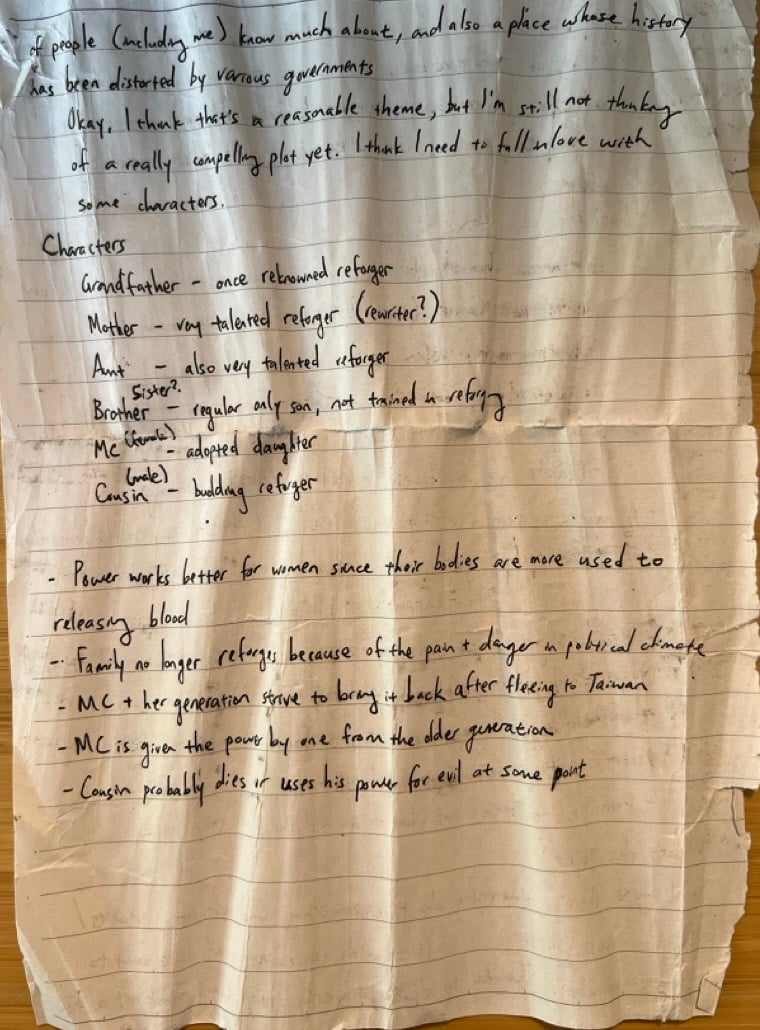 of people (including me) know much about, and also a place whose history
has been distorted by various governments
Okay, I think that's a reasonable theme, but I'm still not thinking
of a really compelling plot yet. I think I need to fall in love with
some characters.
Characters
Grandfather - once reknowned reforger
Mother - very talented reforger (rewriter?)
Aunt - also very talented reforger
Sister?
Brother - regular only son, not trained in reforging
MC (female) - adopted daughter
Cousin (male) - budding reforger
- Power works better for women since their bodies are more used to
releasing blood
- Family no longer reforges because of the pain + danger in political climate
- MC + her generation strive to bring it back after fleeing to Taiwan
- MC is given the power by one from the older generation
- Cousin probably dies or uses his power for evil at some point